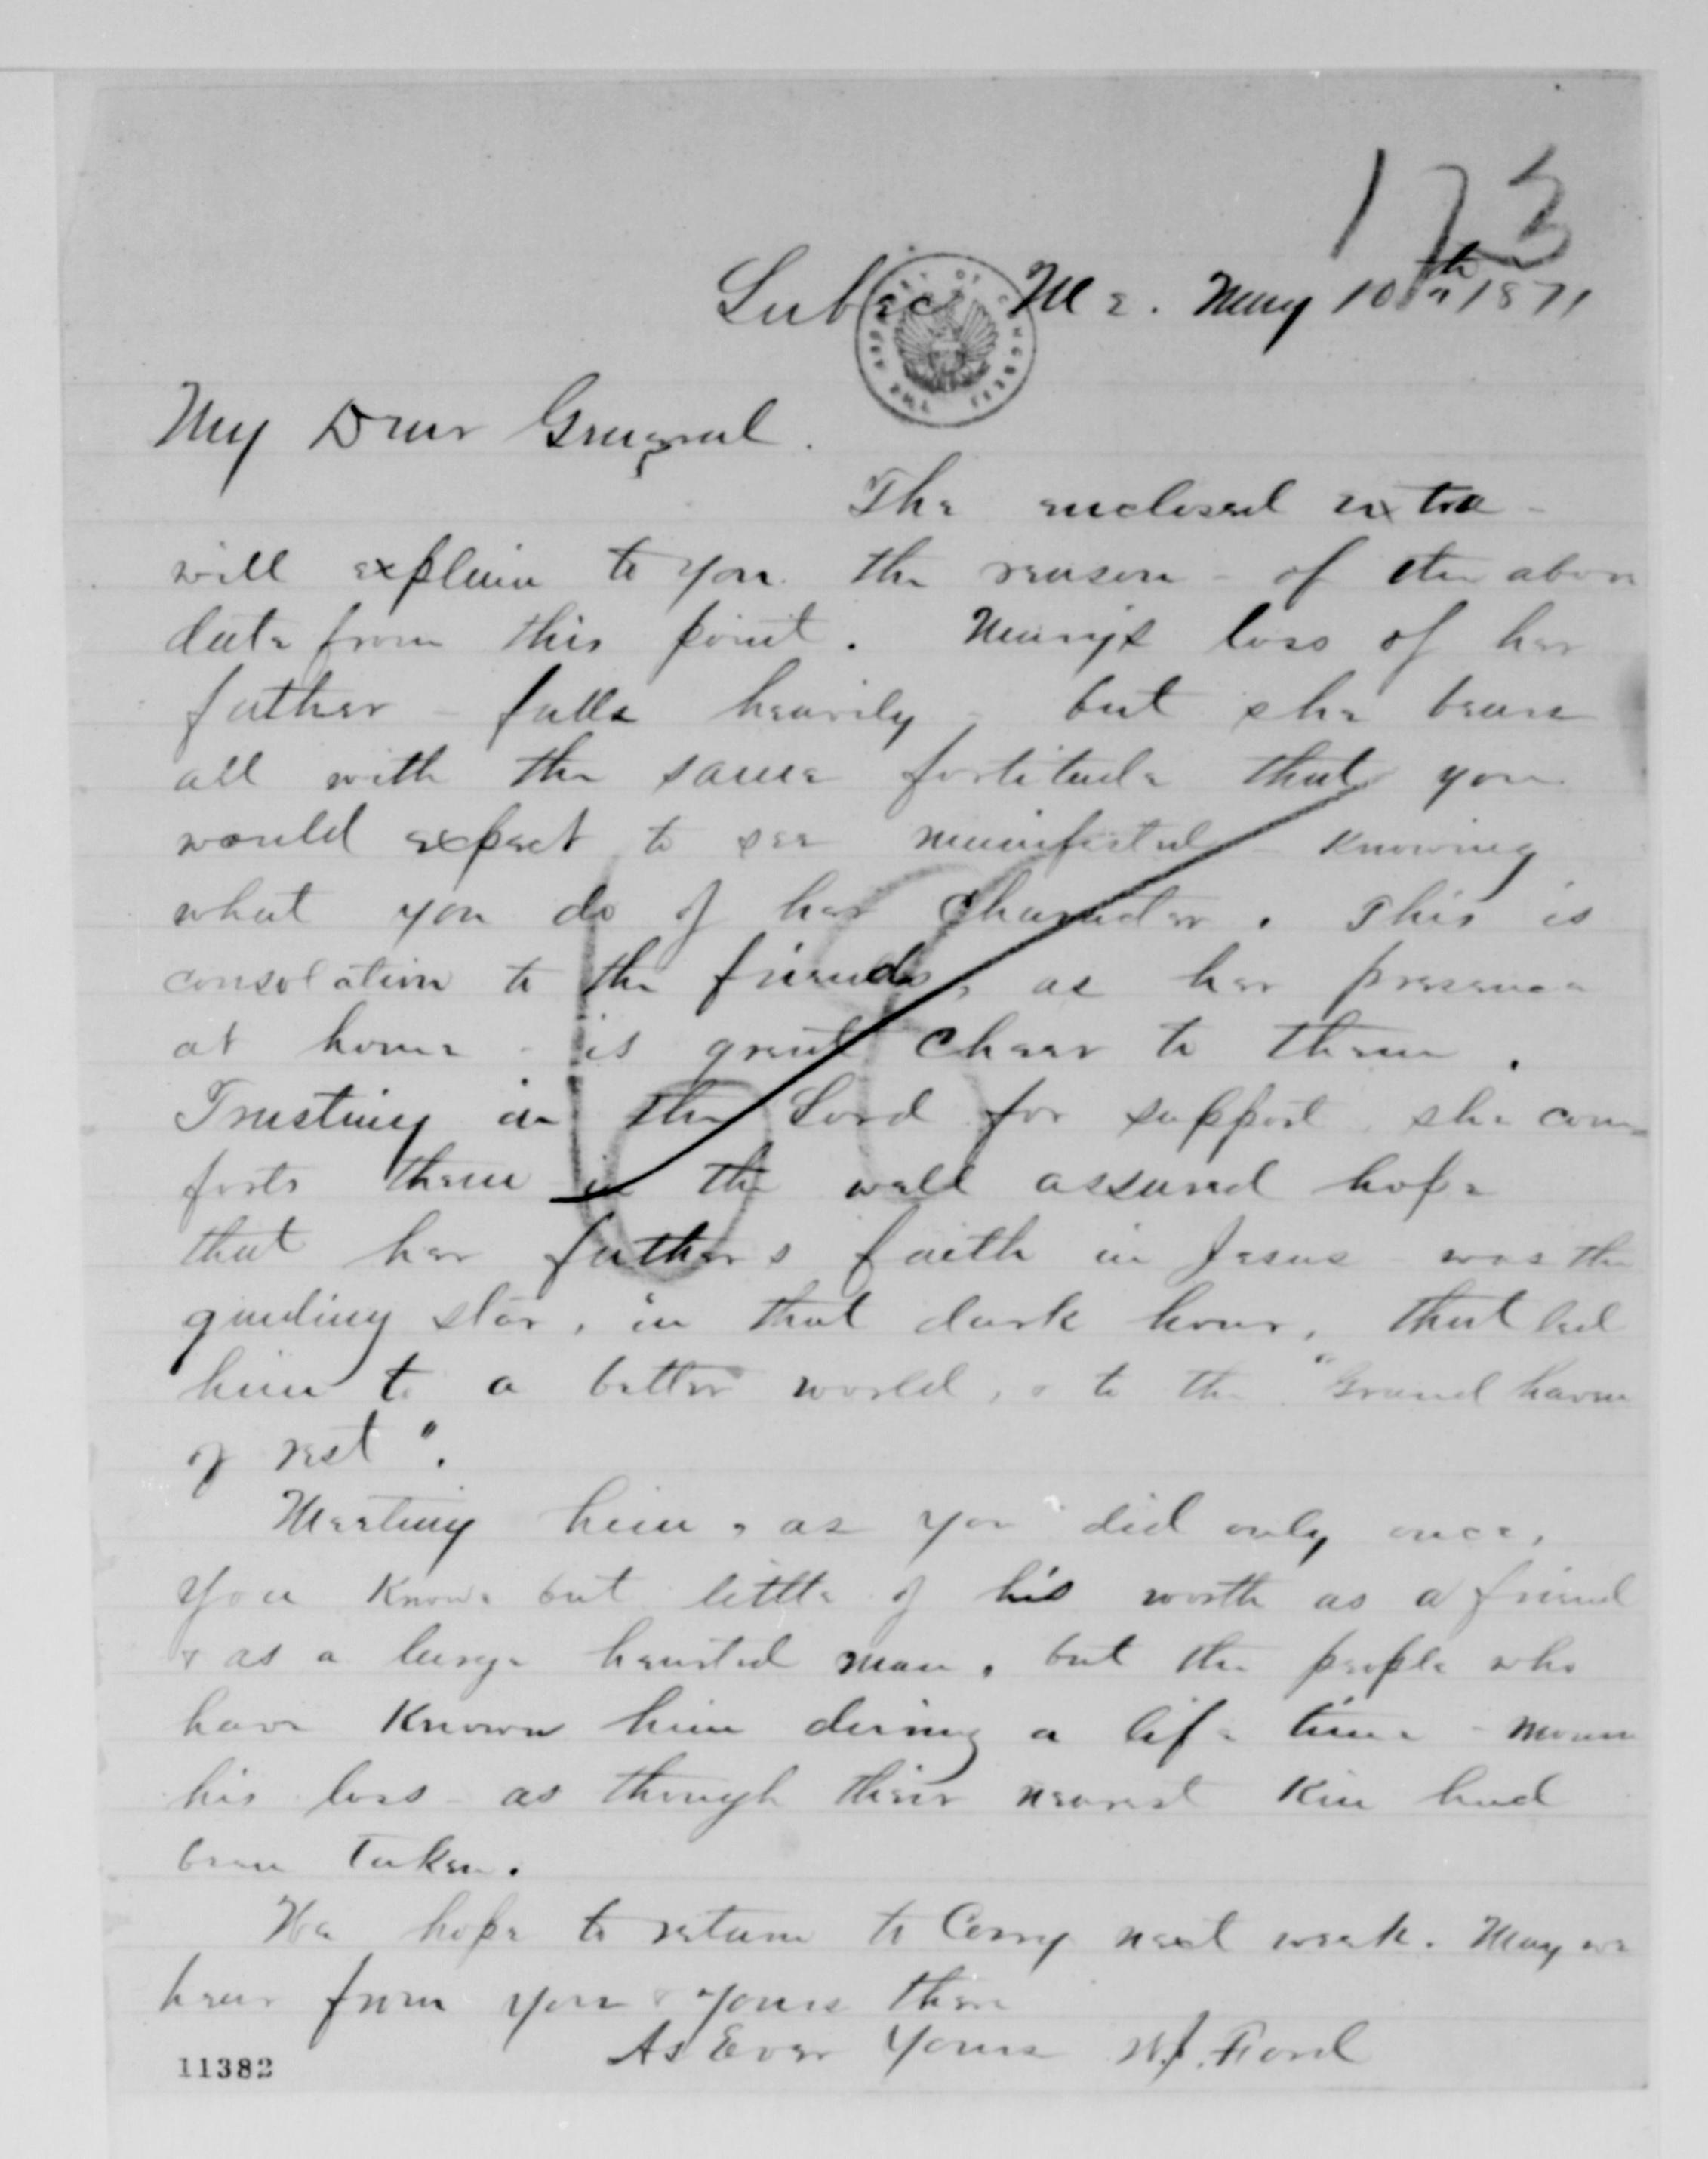 173
Lubec Me. May 10th 1871
My Dear General.
The enclosed extra -
will explain to you the reason - of the above
date from this point. Mary's loss of her
father - falls heavily - but she bears
all with the same fortitude that you
would expect to see manifested - knowing
what you do of her character. This is
consolation to the friends, as her presence
at home - is great cheer to them.
Trusting in the Lord for support she com-
forts them in the well assured hope
that her father's faith in Jesus - was the
guiding star, in that dark hour, that led
him to a better world, & to the "Grand haven
of rest".
Meeting him, as you did only once,
You know but little of his worth as a friend
& as a large hearted man, but the people who
have known him during a life time - mourn
his loss - as though their nearest kin had
been taken.
We hope to return to Corry next week. May we
hear from you & yours there
As Ever Yours W.J. Ford
11382